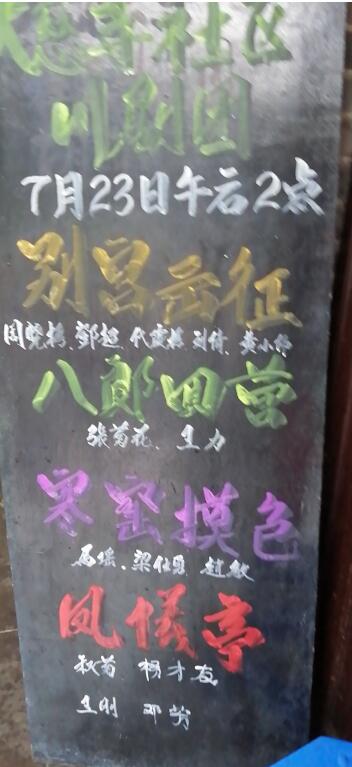 大慈寺社区
川剧团
7月23日午后2点
别宫出征
周晓梅、邹超、代雯、刘倩、黄小
八郎回营
张菊花、王力
寒窑摸包
石瑶、梁仕勇 赵敏
凤仪亭
秋菊 杨才友
王刚 邓勞